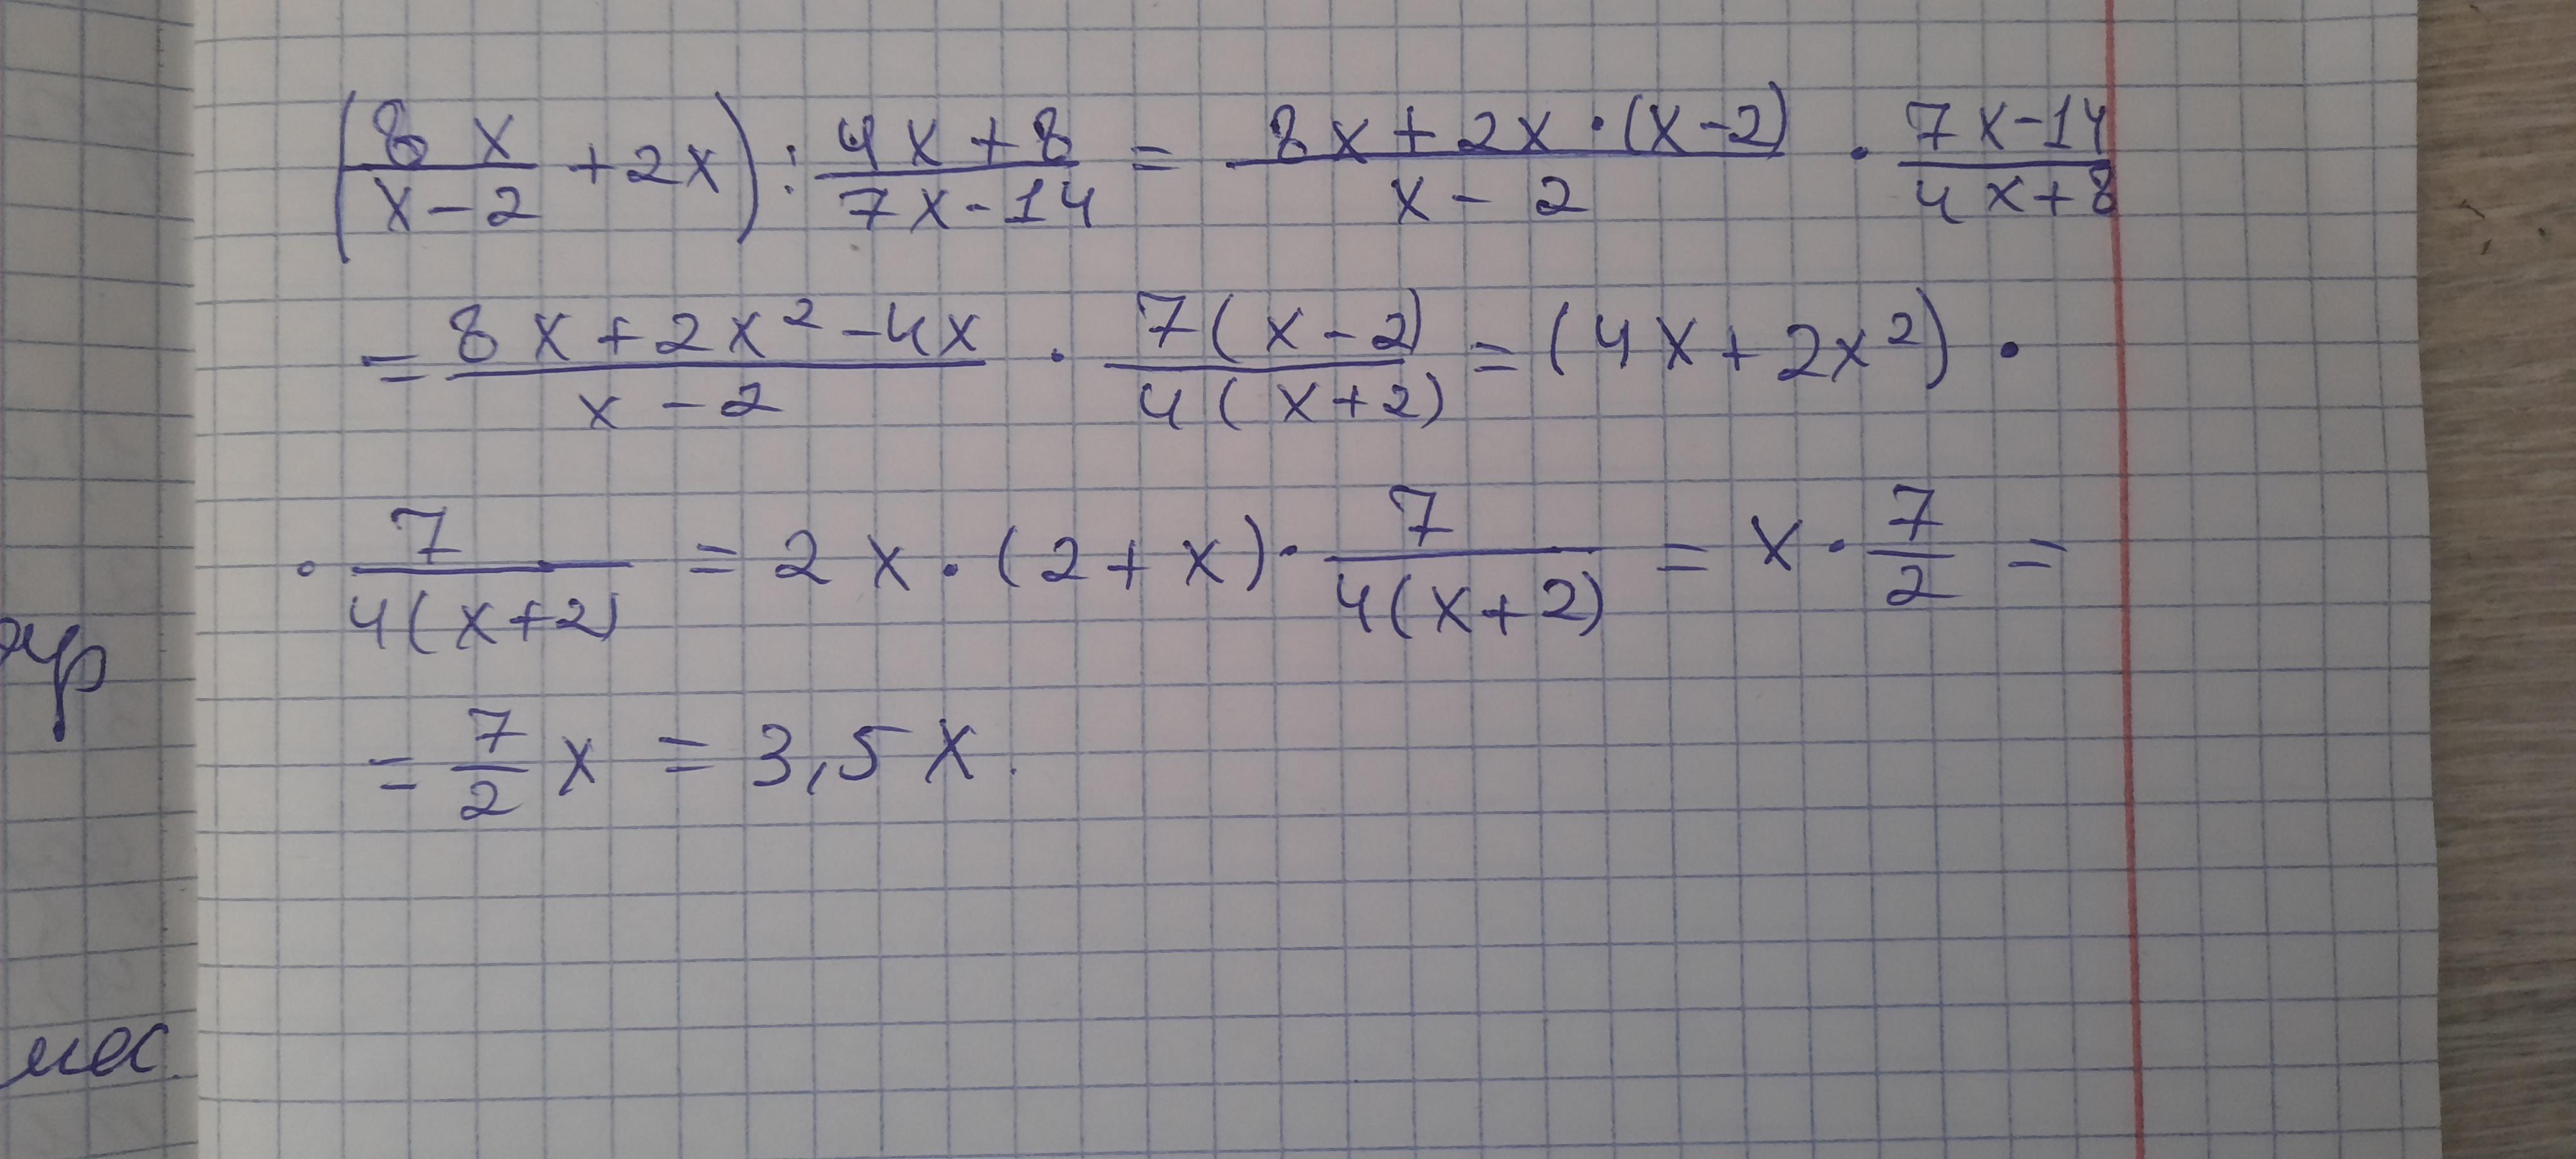 (8x/(x-2) + 2x) : (4x+8)/(7x-14) = (8x+2x·(x-2))/(x-2) · (7x-14)/(4x+8)
= (8x+2x²-4x)/(x-2) · 7(x-2)/4(x+2) = (4x+2x²) ·
· 7/4(x+2) = 2x·(2+x)· 7/4(x+2) = x· 7/2 =
= 7/2 x = 3,5x.